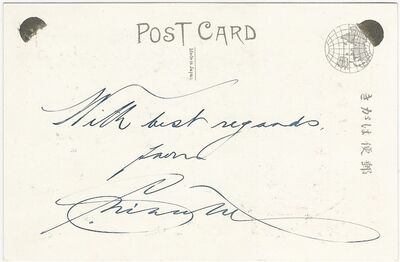 POST CARD
Made in Japan
With best regards,
from
きがは便郵